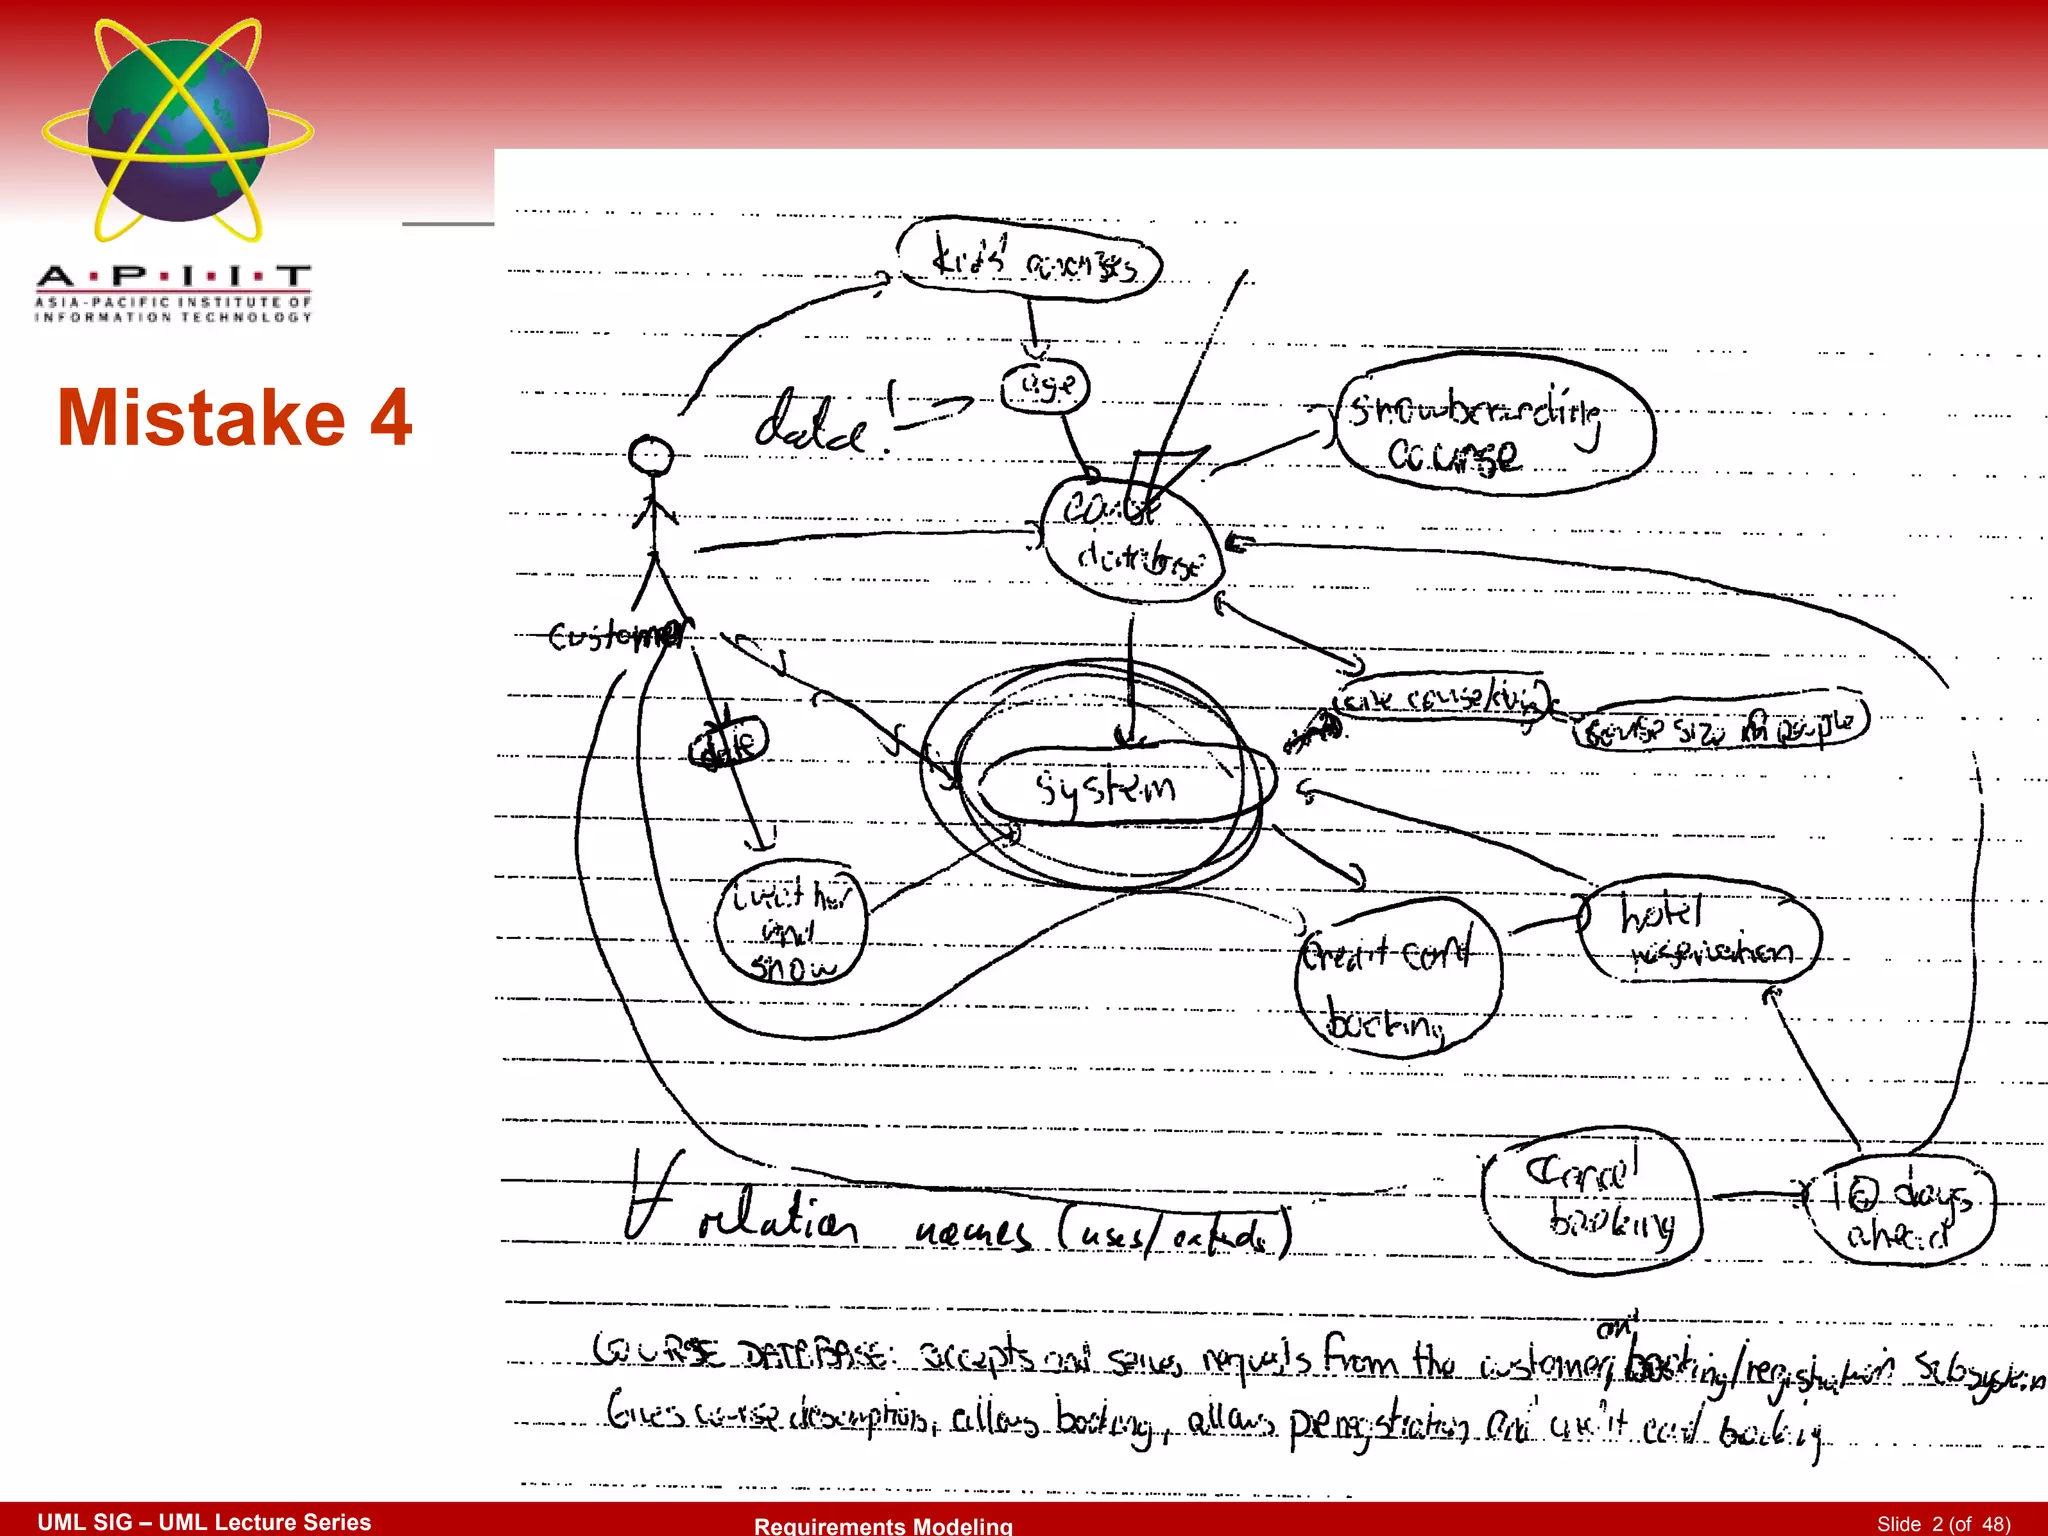 A·P·I·I·T
ASIA-PACIFIC INSTITUTE OF
INFORMATION TECHNOLOGY
Mistake 4
kids' courses
age
data!
snowboarding
course
course
database
customer
date
system
course size in people
weather
and
snow
credit card
booking
hotel
reservation
cancel
booking
10 days
ahead
∀ relation names (uses/extends)
and
COURSE DATABASE: accepts and serves requests from the customer, booking/registration subsystem
Gives course description, allows booking, allows preregistration and credit card booking
UML SIG – UML Lecture Series
Requirements Modeling
Slide 2 (of 48)